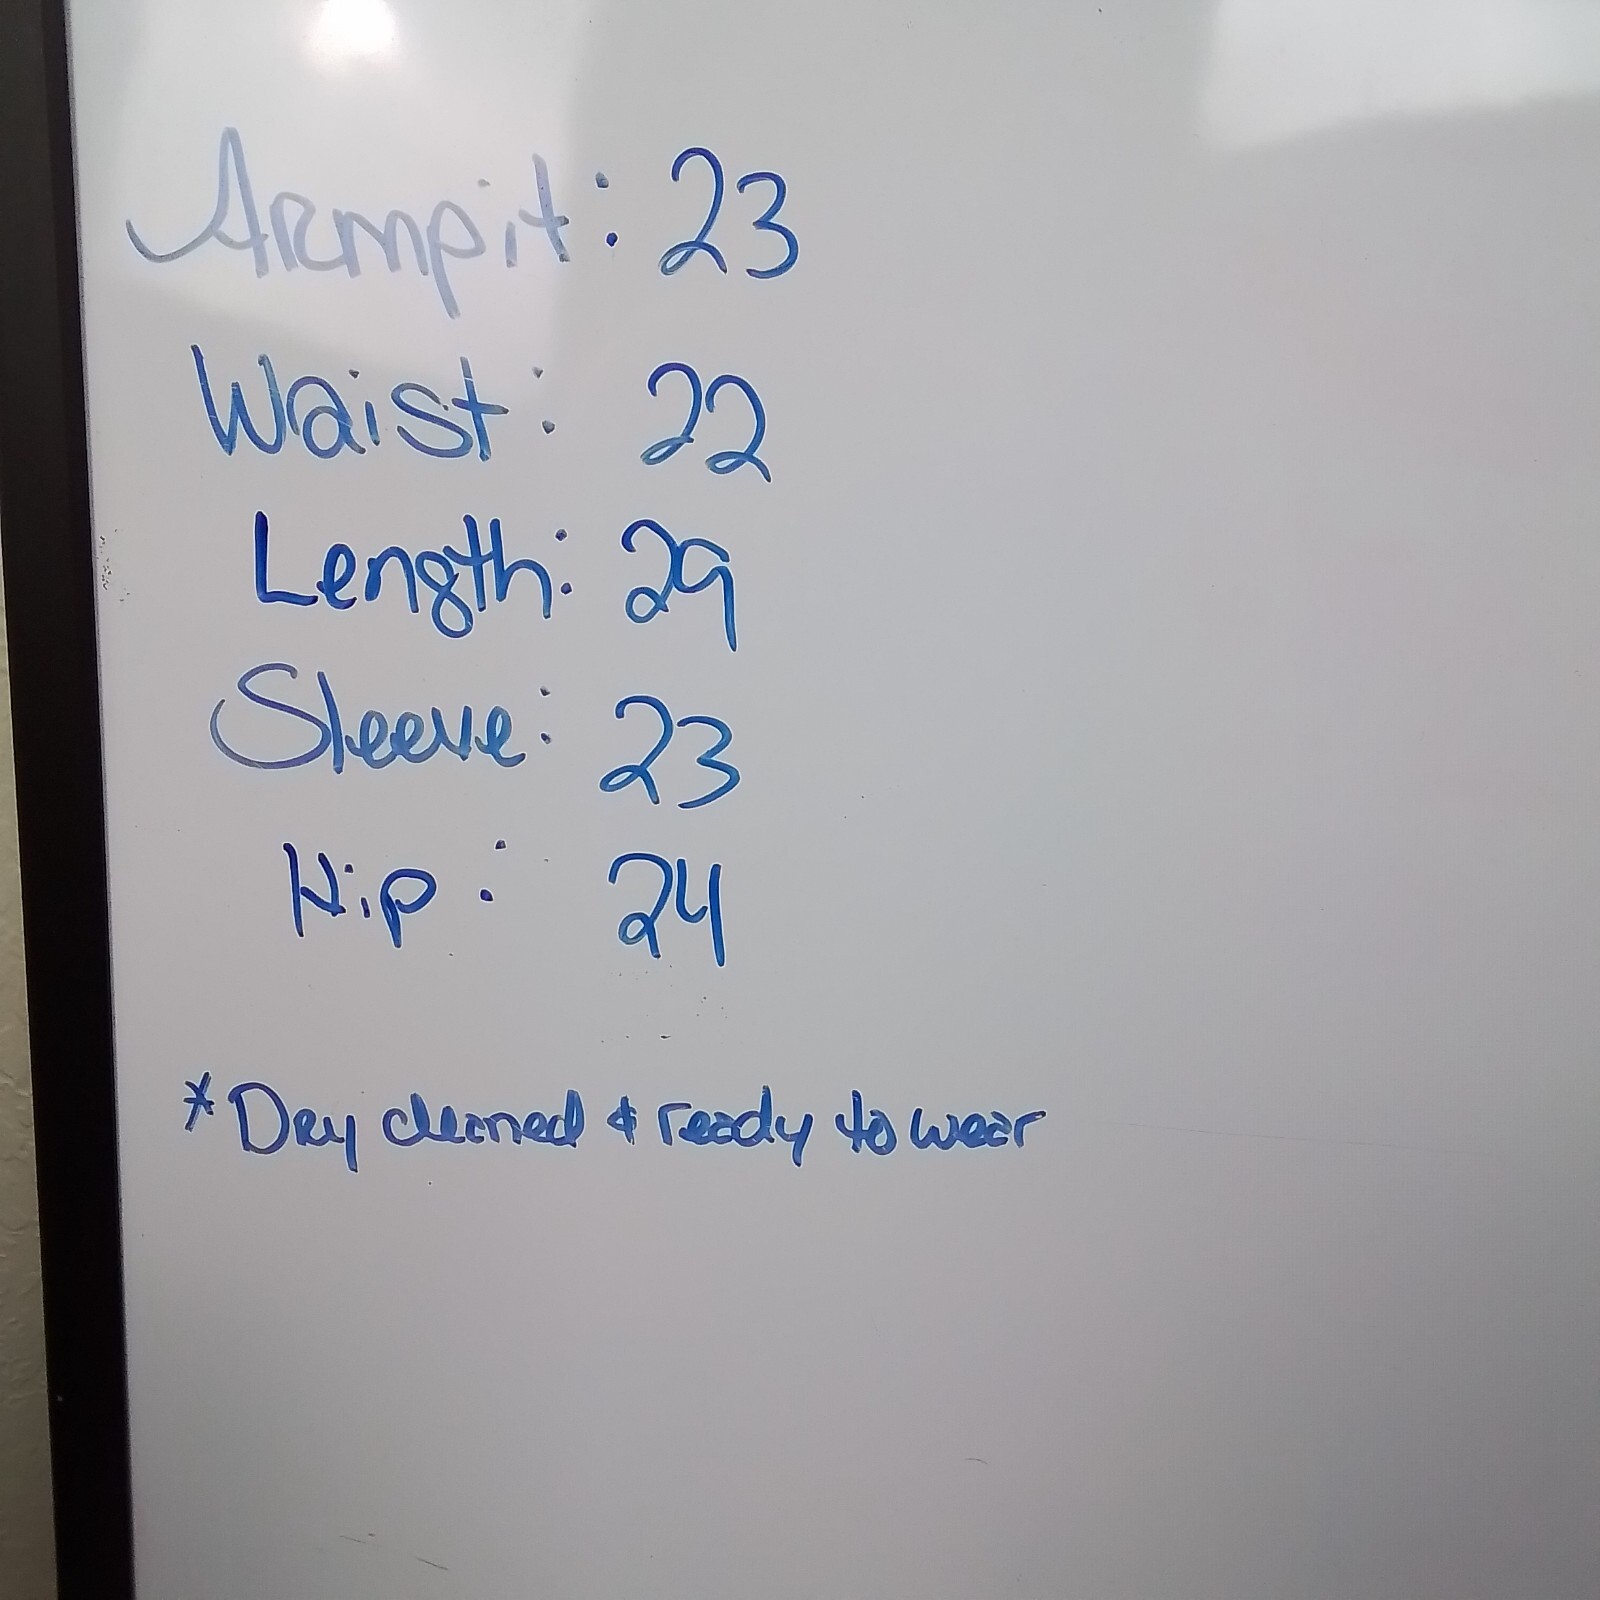 Armpit: 23
Waist: 22
Length: 29
Sleeve: 23
Hip: 24
* Dry cleaned & ready to wear